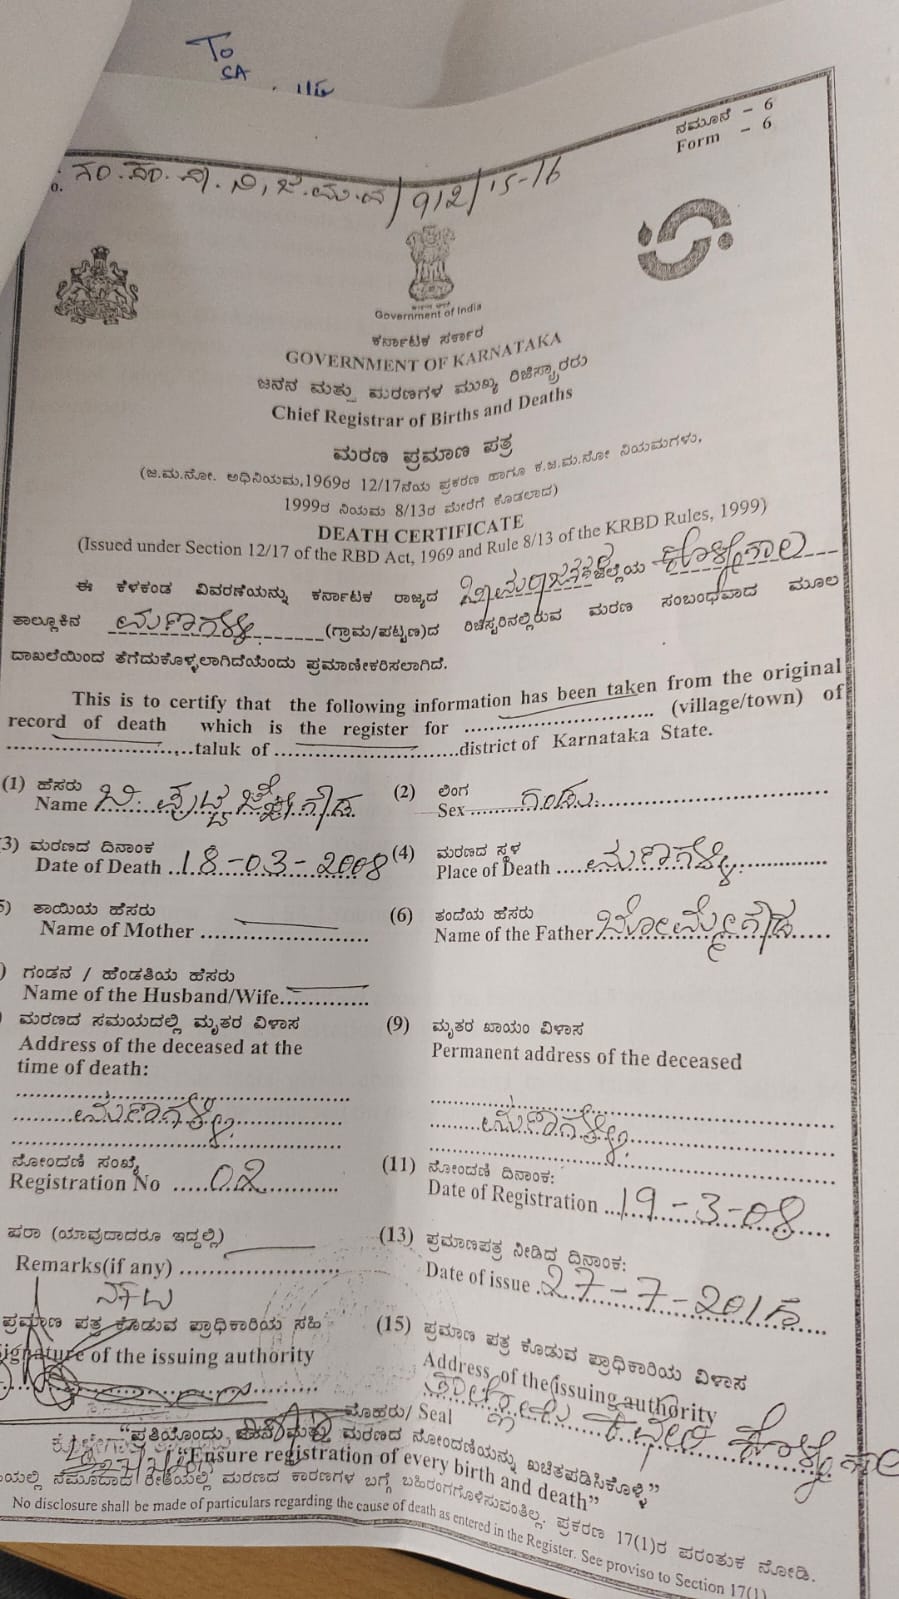 To
SA
ನಮೂನೆ - 6
Form - 6
o. /912/15-16
Government of India
ಕರ್ನಾಟಕ ಸರ್ಕಾರ
GOVERNMENT OF KARNATAKA
ಜನನ ಮತ್ತು ಮರಣಗಳ ಮುಖ್ಯ ರಿಜಿಸ್ಟ್ರಾರರು
Chief Registrar of Births and Deaths
ಮರಣ ಪ್ರಮಾಣ ಪತ್ರ
(ಜ.ಮ.ನೋ. ಅಧಿನಿಯಮ,1969ರ 12/17ನೆಯ ಪ್ರಕರಣ ಹಾಗೂ ಕ.ಜ.ಮ.ನೋ ನಿಯಮಗಳು,
1999ರ ನಿಯಮ 8/13ರ ಮೇರೆಗೆ ಕೊಡಲಾದ)
DEATH CERTIFICATE
(Issued under Section 12/17 of the RBD Act, 1969 and Rule 8/13 of the KRBD Rules, 1999)
ಈ ಕೆಳಕಂಡ ವಿವರಣೆಯನ್ನು ಕರ್ನಾಟಕ ರಾಜ್ಯದ ಚಾಮರಾಜನಗರ ಜಿಲ್ಲೆಯ ಕೊಳ್ಳೇಗಾಲ
ತಾಲ್ಲೂಕಿನ ಮಣಗಳ್ಳಿ (ಗ್ರಾಮ/ಪಟ್ಟಣ)ದ ರಿಜಿಸ್ಟರಿನಲ್ಲಿರುವ ಮರಣ ಸಂಬಂಧವಾದ ಮೂಲ
ದಾಖಲೆಯಿಂದ ತೆಗೆದುಕೊಳ್ಳಲಾಗಿದೆಯೆಂದು ಪ್ರಮಾಣೀಕರಿಸಲಾಗಿದೆ.
This is to certify that the following information has been taken from the original
record of death which is the register for .................... (village/town) of
....................taluk of ....................district of Karnataka State.
(1) ಹೆಸರು
Name
(2) ಲಿಂಗ
Sex ಗಂಡು
3) ಮರಣದ ದಿನಾಂಕ
Date of Death 18-03-2008
(4) ಮರಣದ ಸ್ಥಳ
Place of Death ಮಣಗಳ್ಳಿ
5) ತಾಯಿಯ ಹೆಸರು
Name of Mother ....................
(6) ತಂದೆಯ ಹೆಸರು
Name of the Father ಬೋಮ್ಮೇಗೌಡ
) ಗಂಡನ / ಹೆಂಡತಿಯ ಹೆಸರು
Name of the Husband/Wife.............
) ಮರಣದ ಸಮಯದಲ್ಲಿ ಮೃತರ ವಿಳಾಸ
Address of the deceased at the
time of death:
ಮಣಗಳ್ಳಿ
(9) ಮೃತರ ಖಾಯಂ ವಿಳಾಸ
Permanent address of the deceased
ಮಣಗಳ್ಳಿ
ನೋಂದಣಿ ಸಂಖ್ಯೆ
Registration No 02
(11) ನೋಂದಣಿ ದಿನಾಂಕ:
Date of Registration 19-3-08
ಷರಾ (ಯಾವುದಾದರೂ ಇದ್ದಲ್ಲಿ)
Remarks(if any) ....................
(13) ಪ್ರಮಾಣಪತ್ರ ನೀಡಿದ ದಿನಾಂಕ:
Date of issue 27-7-201
ಪ್ರಮಾಣ ಪತ್ರ ಕೊಡುವ ಪ್ರಾಧಿಕಾರಿಯ ಸಹಿ
Signature of the issuing authority
(15) ಪ್ರಮಾಣ ಪತ್ರ ಕೊಡುವ ಪ್ರಾಧಿಕಾರಿಯ ವಿಳಾಸ
Address of the issuing authority
ಕಛೇರಿ ಕೊಳ್ಳೇಗಾಲ
ಮೊಹರು/ Seal
“ಪ್ರತಿಯೊಂದು ಜನನ ಮತ್ತು ಮರಣದ ನೋಂದಣಿಯನ್ನು ಖಚಿತಪಡಿಸಿಕೊಳ್ಳಿ”
“Ensure registration of every birth and death”
ಯಲ್ಲಿ ನಮೂದಾದ ರೀತಿಯಲ್ಲಿ ಮರಣದ ಕಾರಣಗಳ ಬಗ್ಗೆ ಬಹಿರಂಗಗೊಳಿಸುವಂತಿಲ್ಲ. ಪ್ರಕರಣ 17(1)ರ ಪರಂತುಕ ನೋಡಿ.
No disclosure shall be made of particulars regarding the cause of death as entered in the Register. See proviso to Section 17(1)